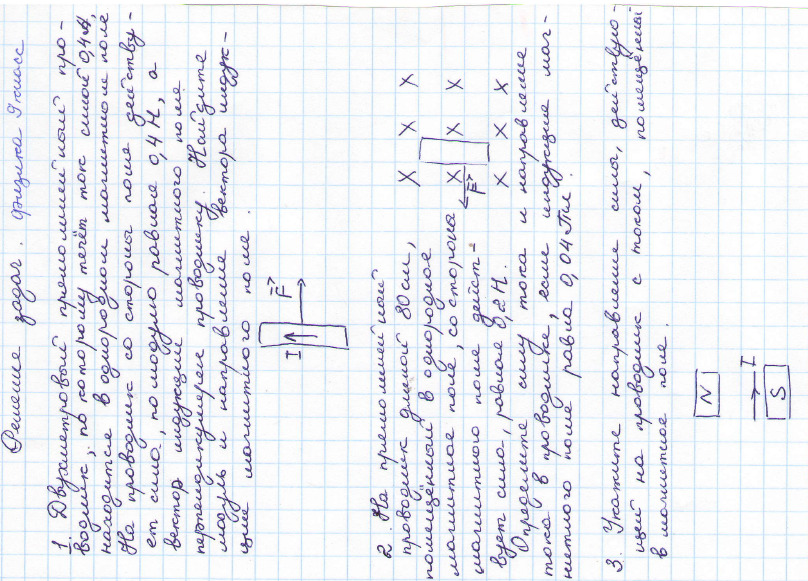 Решение задач. Физика 9 класс
1. Двухметровый прямолинейный про-
водник, по которому течёт ток силой 0,4 А,
находится в однородном магнитном поле
На проводник со стороны поля действу-
ет сила, по модулю равная 0,4 Н, а
вектор индукции магнитного поля
перпендикулярен проводнику. Найдите
модуль и направление вектора индук-
ции магнитного поля.
I F
2. На прямолинейный
проводник длиной 80 см,
помещённый в однородное
магнитное поле, со стороны
магнитного поля дейст-
вует сила, равная 0,2 Н.
Определите силу тока и направление
тока в проводнике, если индукция маг-
нитного поля равна 0,04 Тл.
X X X
X X X
X X X
F
3. Укажите направление силы, действую-
щей на проводник с током, помещённый
в магнитное поле.
N
I
S